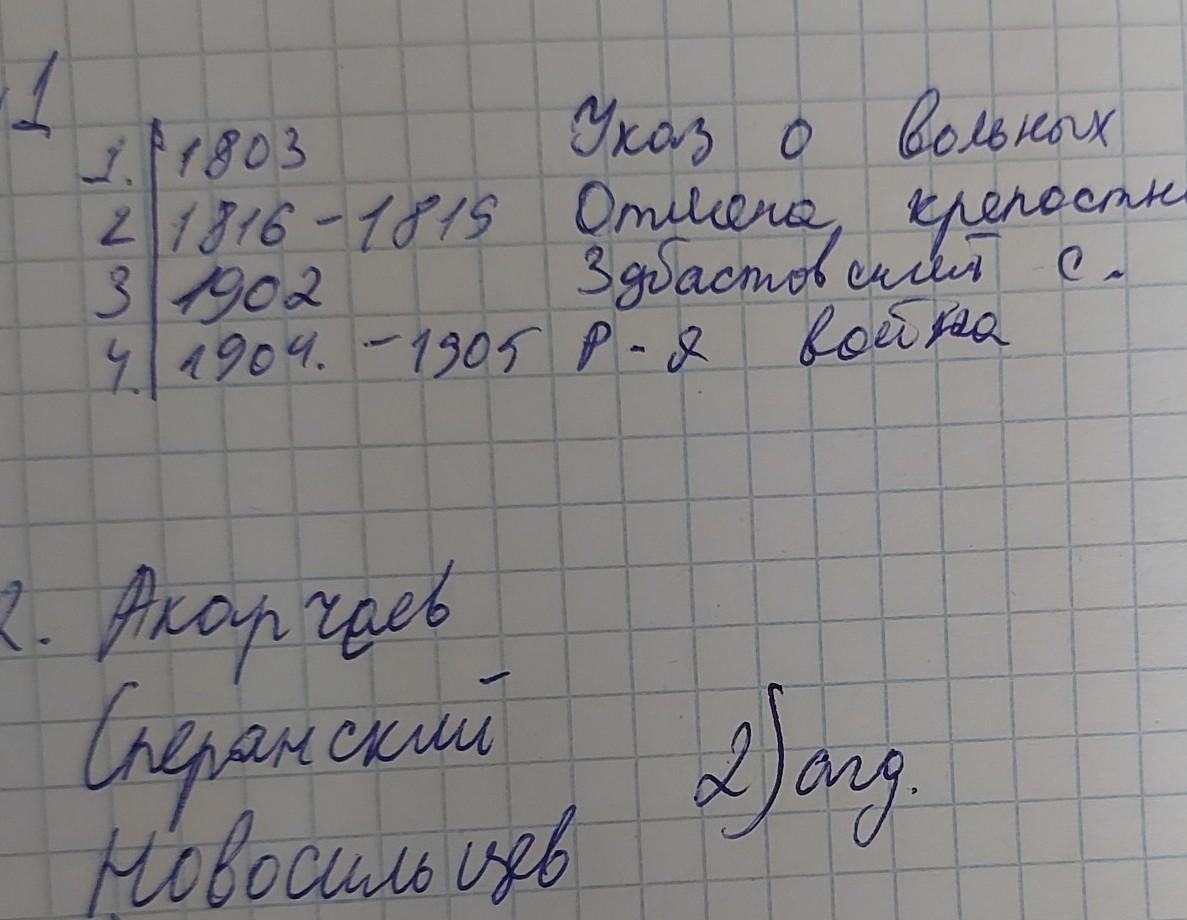 1
1. 1803 Указ о вольных
2 1816-1819 Отмена крепостн
3 1902 Здбастовский с.
4. 1904. -1905 Р-Я война
2. Акарчаев
Сперанский
Новосильцев
2) агд.